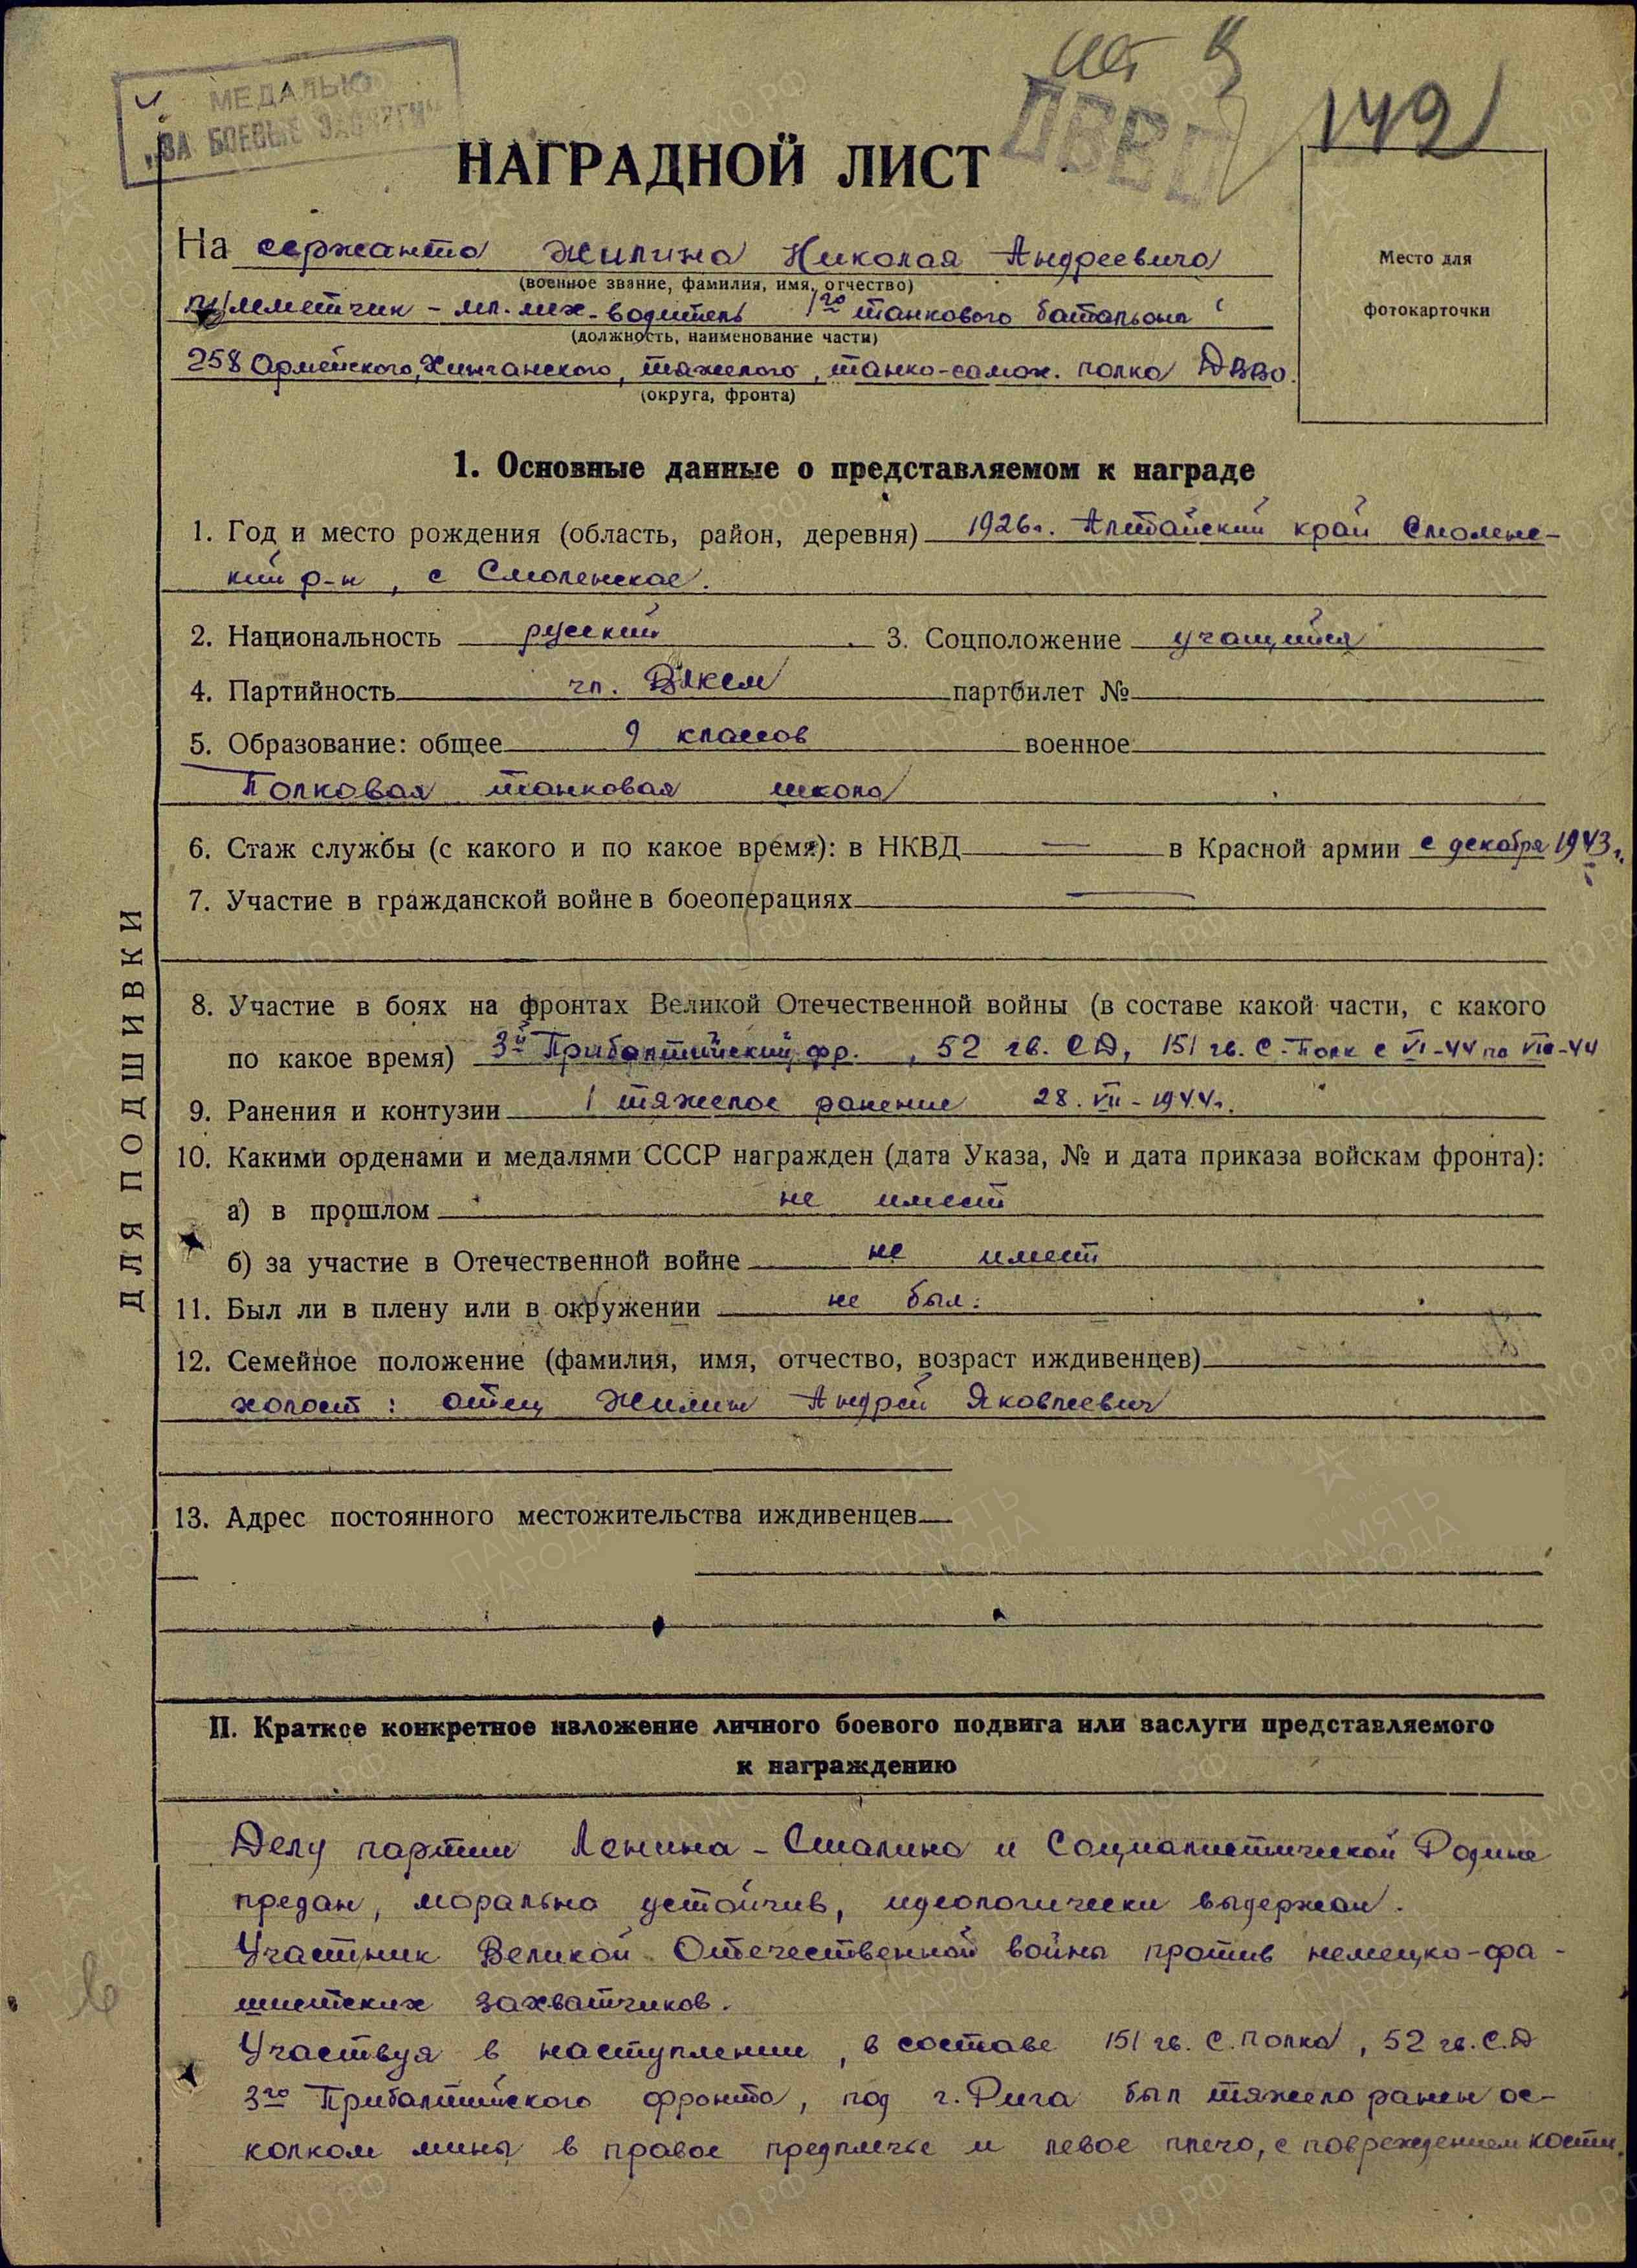 МЕДАЛЬЮ
„ЗА БОЕВЫЕ ЗАСЛУГИ"
ДВВО
142
НАГРАДНОЙ ЛИСТ
На сержанта Жилина Николая Андреевича
(военное звание, фамилия, имя, отчество)
пулеметчик - мл. мех-водитель 1го танкового батальона
(должность, наименование части)
258 Армейского, Хинганского, тяжелого, танко-самох. полка ДВВО.
(округа, фронта)
Место для
фотокарточки
1. Основные данные о представляемом к награде
1. Год и место рождения (область, район, деревня) 1926г. Алтайский край Смоленс-
кий р-н, с Смоленское.
2. Национальность русский 3. Соцположение учащийся
4. Партийность чл. ВЛКСМ партбилет №
5. Образование: общее 9 классов военное
Полковая танковая школа
6. Стаж службы (с какого и по какое время): в НКВД — в Красной армии с декабря 1943г.
7. Участие в гражданской войне в боеоперациях —
8. Участие в боях на фронтах Великой Отечественной войны (в составе какой части, с какого
по какое время) 3й Прибалтийский фр., 52 гв. СД, 151 гв. С. Полк с VI-44 по VIII-44
9. Ранения и контузии 1 тяжелое ранение 28. VII - 1944г.
10. Какими орденами и медалями СССР награжден (дата Указа, № и дата приказа войскам фронта):
а) в прошлом не имеет
б) за участие в Отечественной войне не имеет
11. Был ли в плену или в окружении не был.
12. Семейное положение (фамилия, имя, отчество, возраст иждивенцев)
холост: отец Жилин Андрей Яковлевич
13. Адрес постоянного местожительства иждивенцев
ДЛЯ ПОДШИВКИ
II. Краткое конкретное изложение личного боевого подвига или заслуги представляемого
к награждению
Делу партии Ленина - Сталина и Социалистической Родине
предан, морально устойчив, идеологически выдержан.
Участник Великой Отечественной войны против немецко-фа-
шистских захватчиков.
Участвуя в наступлении, в составе 151 гв. С. полка, 52 гв. С.Д
3го Прибалтийского фронта, под г. Рига был тяжело ранен ос-
колком мины в правое предплечье и левое плечо, с повреждением кости.